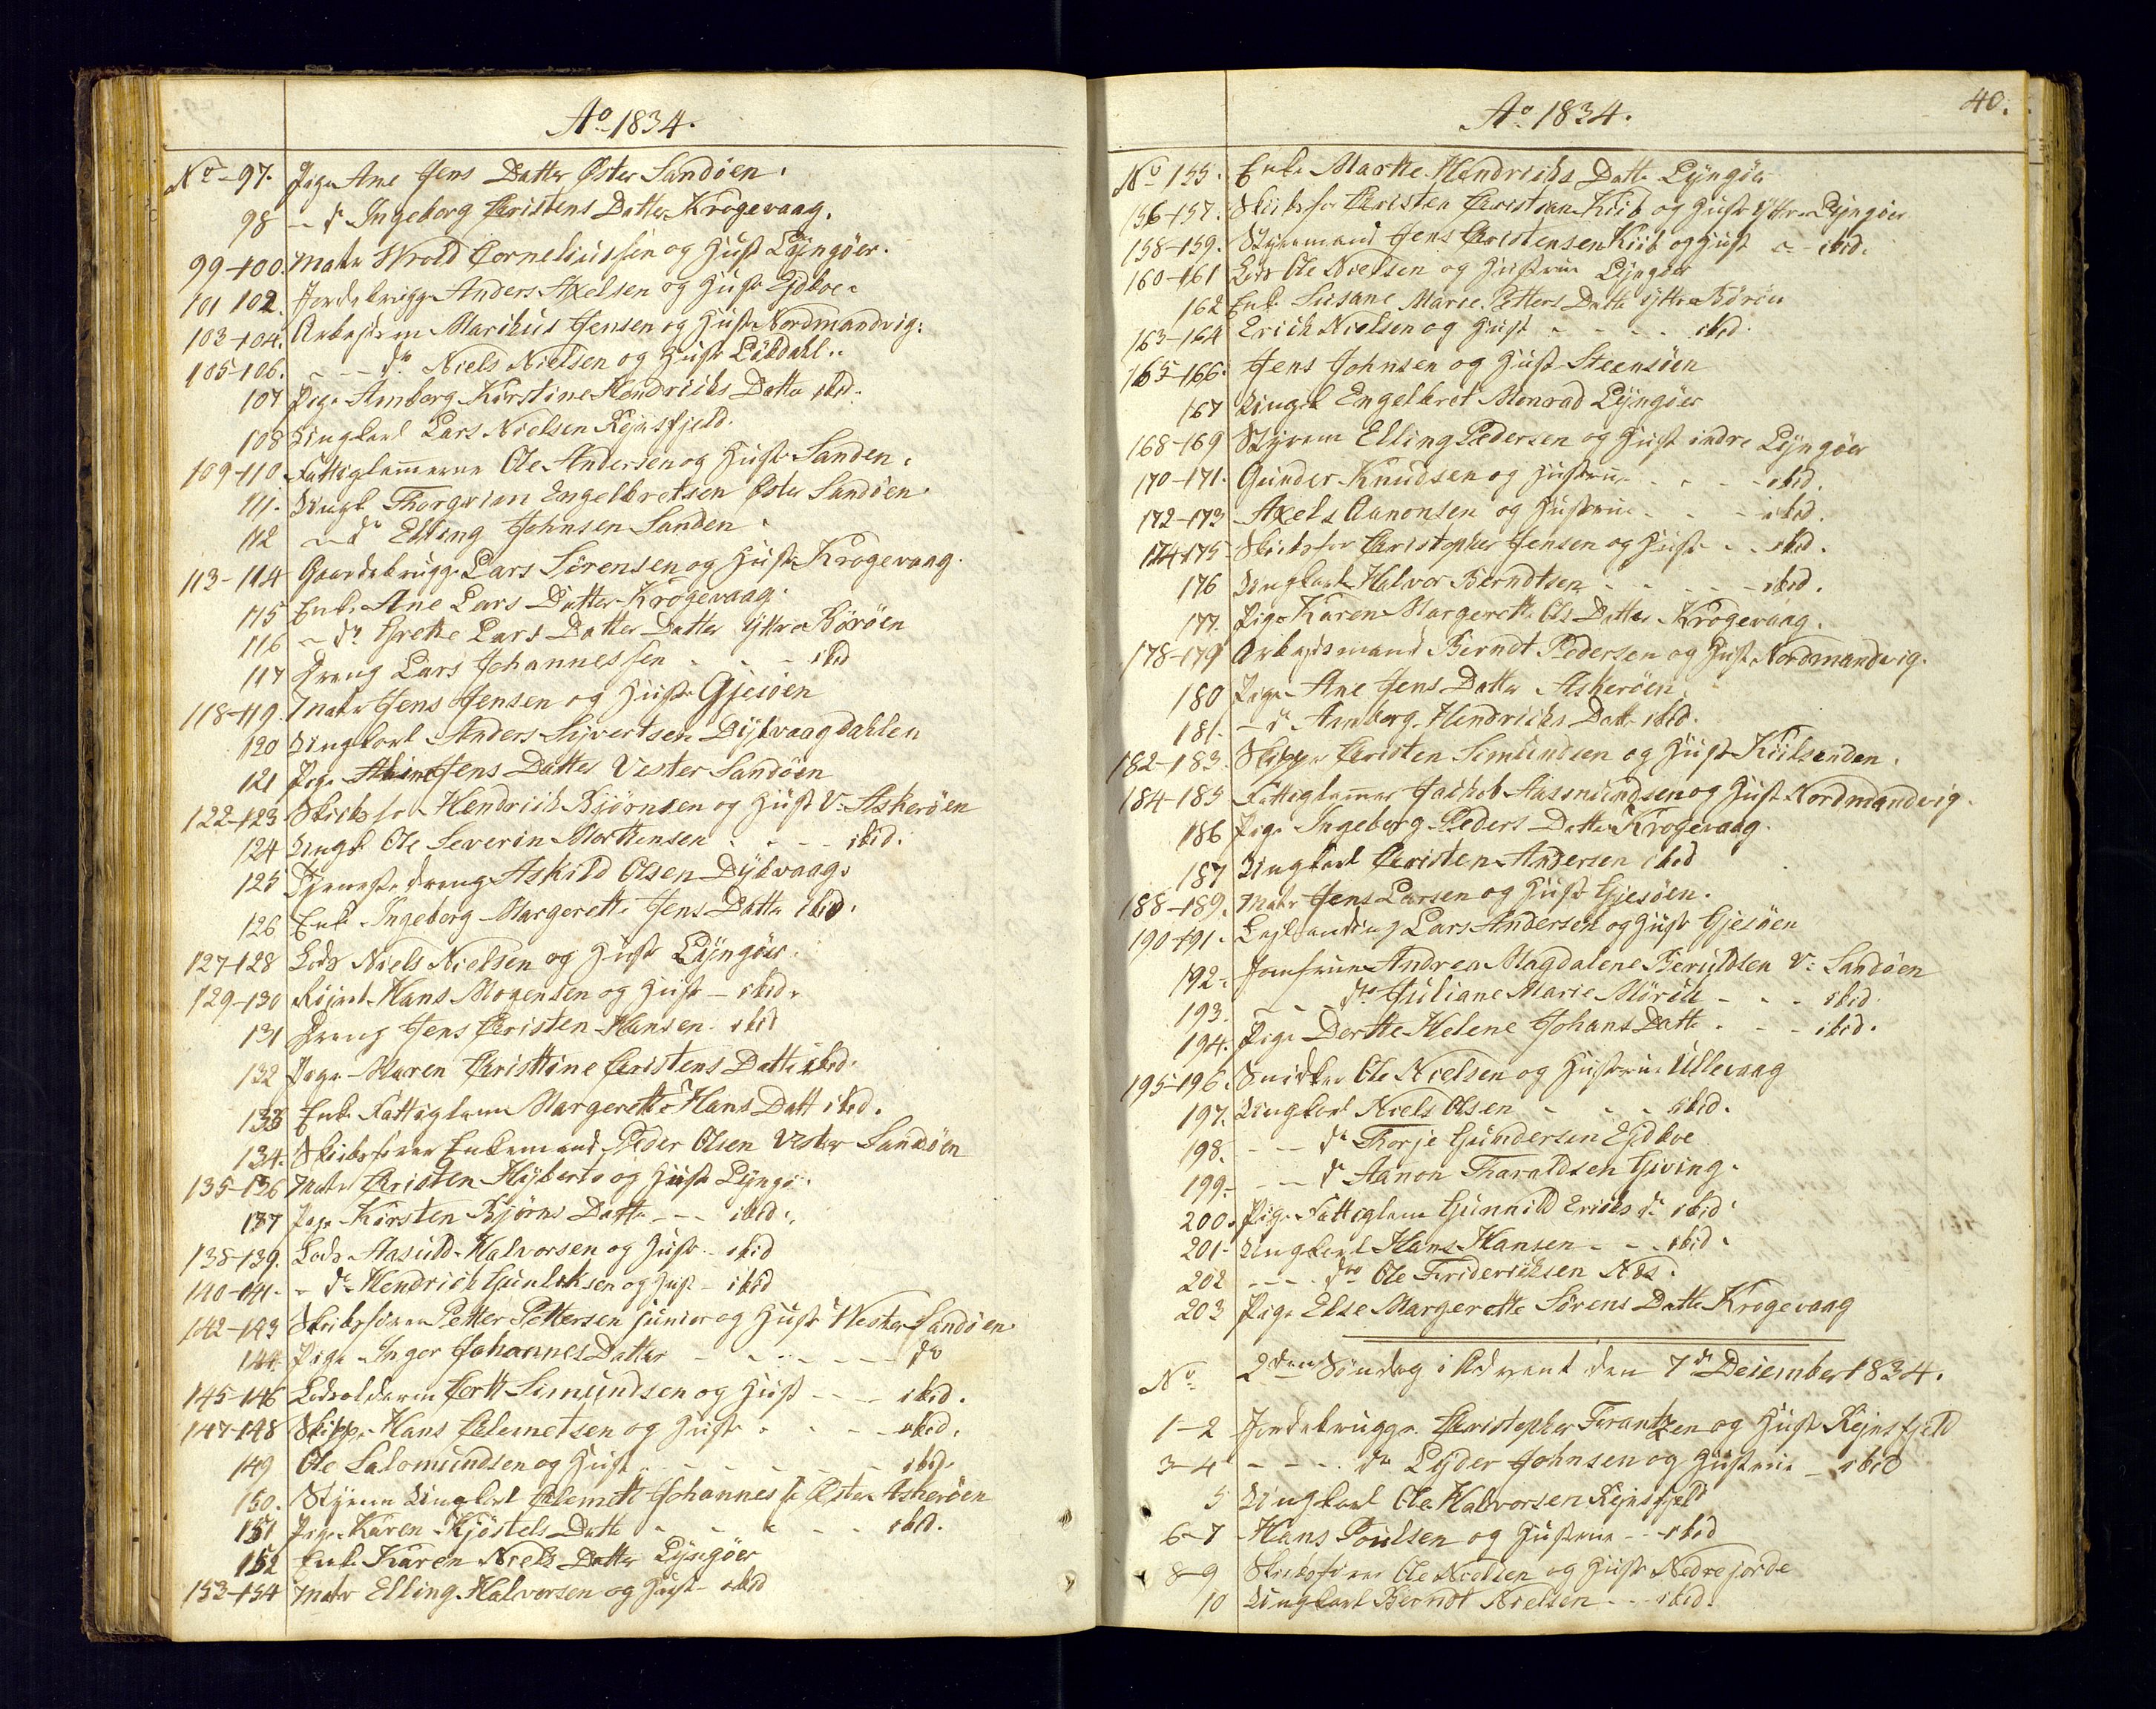 Ao 1834.
No 97. Pige Ane Jens Datter Øster Sandøen.
98 - do Ingeborg Christens Datter Krogevaag.
99-100. Matr Wrold Corneliussen og Hust Lÿngöer.
101 102. Jordebrugge Anders Axelsen og Hust Ejdboe.
103-104. Arbejdsm Marihus Jensen og Hust Nordmandvig.
105-106. - - do Niels Nielsen og Hust Lökdahl..
107 Pige Amborg Kirstine Hendrichs Datter ibid.
108 Ungkarl Lars Nielsen Rejersfjeld.
109-110 Fattiglemmerne Ole Andersen og Hust Sanden.
111. Ungk Thorgrim Engelbretsen Øster Sandöen
112 - do Elling Johnsen Sanden
113-114 Gaardebrugg Lars Sörensen og Hust Krogevaag.
115 Enke Ane Lars Datter Krogevaag.
116 - do Grethe Lars Datter Datter Ÿttre Börøen
117 Dreng Lars Johannessen - - - ibid
118-119. Matr Jens Jensen og Hust Gjesöen
120 Ungkarl Anders Sÿvertsen Dÿbvaagdahlen
121 Pige Jens Datter Vester Sandöen
122-123 Skibsfo Hendrich Björnsen og Hust V: Askeröen
124 Ungk Ole Severin Morthensen - - - ibid.
125 Tjeneste dreng Askild Olsen Dÿbvaag.
126 Enke Ingeborg Margrethe Jens Datter ibid.
127-128 Lods Niels Nielsen og Hust Lÿngöer.
129-130 Hans Mogensen og Hust - ibid.
131 Dreng Jens Christen Hansen ibid
132 Pige Maren Christine Christens Datte ibid.
133 Enke Fattiglem Margerethe Hans Datt ibid.
134. Skibsfører Enkemand Peder Olsen Vester Sandöen
135-136 Matr Christen Hÿberts og Hust Lÿngö.
137 Pige Kirsten Bjørns Datte - - ibid.
138-139. Lods Aasuld Halvorsen og Hust - ibid
140-141. - do Hendrich Gunleksen og Hust - ibid
142-143 Skibsförer Petter Pettersen junior og Hust Wester Sandöen.
144. Pige Inger Johannes Datter - - - - - do
145-146 Lodsolderm Cort Simundsen og Hust - - - ibid.
147-148 Skippe Hans Clemetsen og Hust - - - ibid.
149 Ole Salomundsen og Hust - - - - - ibid.
150. Styrm Ungkarl Clemett Johannes Øster Askeröen
151 Pige Karen Kjöstels Datte - - - - ibid.
152 Enke Karen Niels Datter Lÿngöer
153-154 Matr Elling Halvorsen og Hust - ibid
40.
Ao 1834.
No 155. Enke Marthe Hendrichs Datte Lÿngöer
156-157. Skibsfor Christen Christian Kiib og Hust Ÿttre Lÿngöer
158-159. Styrmand Jens Christensen Kiib og Hust - ibid.
160-161 Lods Ole Nielsen og Hustrue Lÿngöer
162 Enke Susane Marie Petters Datte ÿttre Böröen
163-164 Erich Nielsen og Hust - - - - ibid.
165-166. Jens Johnsen og Hust Steensöen
167 Ungk Engelbret Monrad Lÿngöer
168-169 Styrm Elling Pedersen og Hust indre Lÿngöer
170-171. Gunder Knudsen og Hustrue - - - ibid.
172-173 Axel Aanonsen og Hustrue - - - ibid.
174-175 Skibsfor Christopher Jensen og Hust - - ibid.
176 Ungkarl Halvor Berndtsen - - - - ibid.
177. Pige Karen Margerethe Ols Datter Krogevaag.
178-179 Arbejdsmand Berndt Pedersen og Hust Nordmandvig.
180 Pige Ane Jens Datter Askeröen.
181. - do Amborg Hendrichs Datt ibid.
182-183. Skipper Christen Simundsen og Hust Kiilsanden.
184-185 Fattiglemer Jachob Aasmundsen og Hust Nordmandvig.
186 Pige Ingeborg Peders Datte Krogevaag.
187 Ungkarl Christen Andersen ibid
188-189. Matr Jens Larsen og Hust Gjesöen.
190-191. Lars Andersen og Hust Gjesöen
192. Jomfrue Andrea Magdalene Beruldsen V: Sandöen
193. - - do Juliane Marie Mörch - - - ibid.
194. Pige Dorthe Helene Johans Datte - - - ibid.
195-196. Snidker Ole Nielsen og Hustrue Ullevaag
197. Ungkarl Niels Olsen - - - ibid.
198. - - do Thorje Gundersen Ejdboe
199. - - do Aanon Tharaldsen Giving.
200. Pige Fattiglem Gunnild Erichs do ibid
201. Ungkarl Hans Hansen - - ibid.
202 - - - do Ole Friderichsen Næs.
203 Pige Else Margerethe Sörens Datte Krogevaag
No 2den Söndag i Advent den 7de December 1834.
1-2 Jordebrugge Christopher Frantzen og Hust Rejersfjeld
3-4 - - - do Lÿder Johnsen og Hustrue - ibid
5 Ungkarl Ole Halvorsen Rejersfjeld
6-7 Hans Poulsen og Hustrue - - ibid
8-9 Skibsförer Ole Nielsen og Hust Nedrejorde
10 Ungkarl Berndt Nielsen - - ibid.